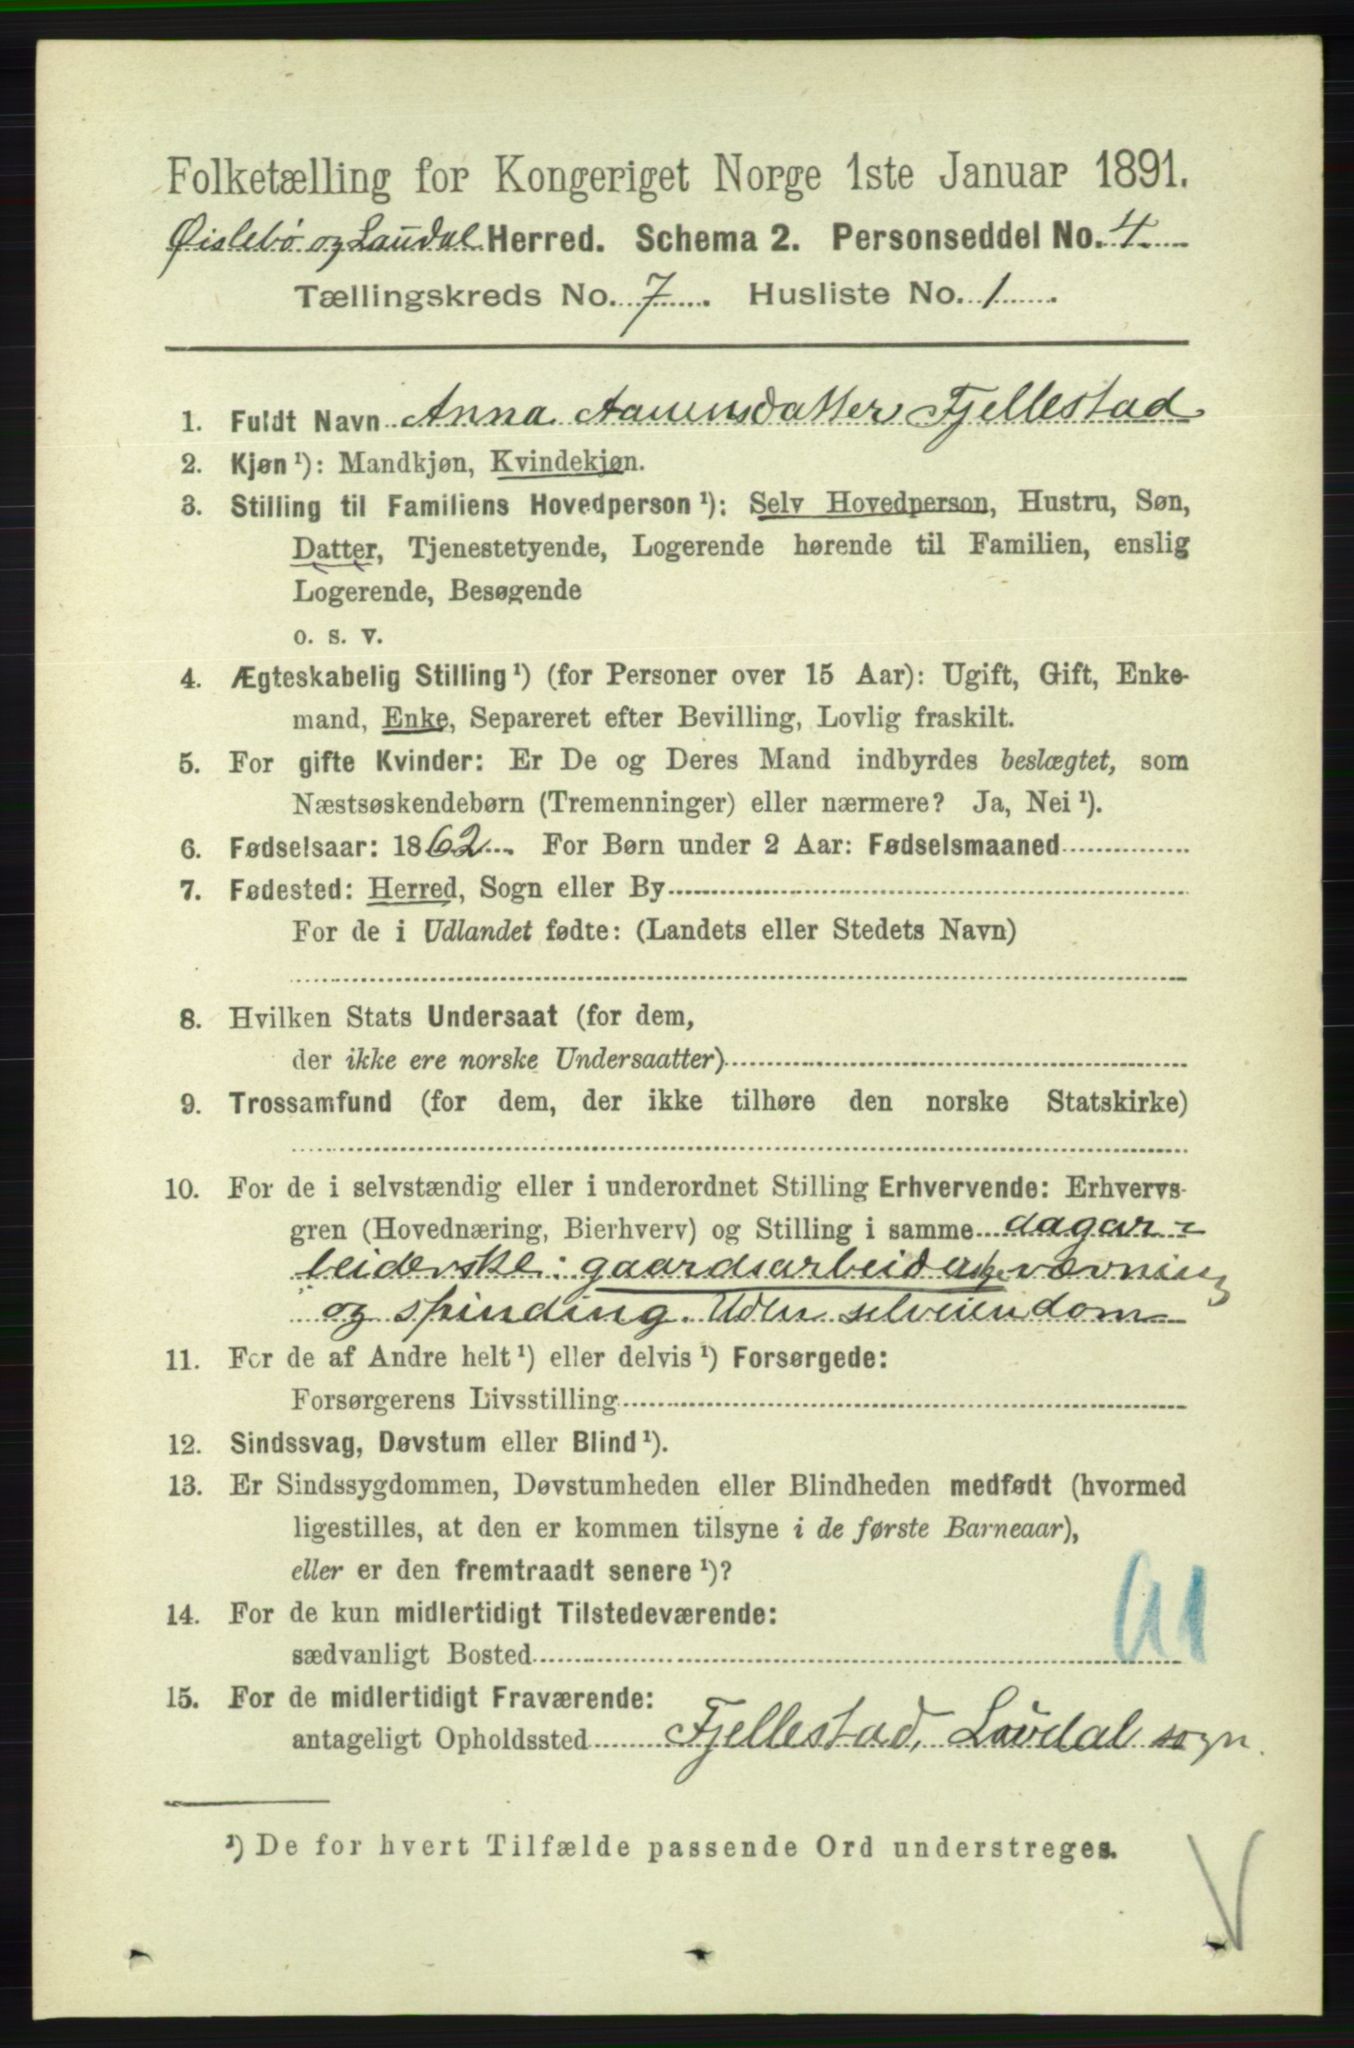 Folketælling for Kongeriget Norge 1ste Januar 1891.
Øislebø og Laudal Herred. Schema 2. Personseddel No. 4
Tællingskreds No. 7. Husliste No. 1
1. Fuldt Navn Anna Aanensdatter Fjellestad
2. Kjøn ¹): Mandkjøn, Kvindekjøn.
3. Stilling til Familiens Hovedperson ¹): Selv Hovedperson, Hustru, Søn,
Datter, Tjenestetyende, Logerende hørende til Familien, enslig
Logerende, Besøgende
o. s. v.
4. Ægteskabelig Stilling ¹) (for Personer over 15 Aar): Ugift, Gift, Enke-
mand, Enke, Separeret efter Bevilling, Lovlig fraskilt.
5. For gifte Kvinder: Er De og Deres Mand indbyrdes beslægtet, som
Næstsøskendebørn (Tremenninger) eller nærmere? Ja, Nei ¹).
6. Fødselsaar: 1862. For Børn under 2 Aar: Fødselsmaaned
7. Fødested: Herred, Sogn eller By
For de i Udlandet fødte: (Landets eller Stedets Navn)
8. Hvilken Stats Undersaat (for dem,
der ikke ere norske Undersaatter)
9. Trossamfund (for dem, der ikke tilhøre den norske Statskirke)
10. For de i selvstændig eller i underordnet Stilling Erhvervende: Erhvervs-
gren (Hovednæring, Bierhverv) og Stilling i samme dagar-
beiderske: gaardsarbeiderske vævning
og spinding. Uden selveiendom
11. For de af Andre helt ¹) eller delvis ¹) Forsørgede:
Forsørgerens Livsstilling
12. Sindssvag, Døvstum eller Blind ¹).
13. Er Sindssygdommen, Døvstumheden eller Blindheden medfødt (hvormed
ligestilles, at den er kommen tilsyne i de første Barneaar),
eller er den fremtraadt senere ¹)?
14. For de kun midlertidigt Tilstedeværende:
sædvanligt Bosted
15. For de midlertidigt Fraværende:
antageligt Opholdssted Fjellestad, Løvdal sogn.
¹) De for hvert Tilfælde passende Ord understreges.